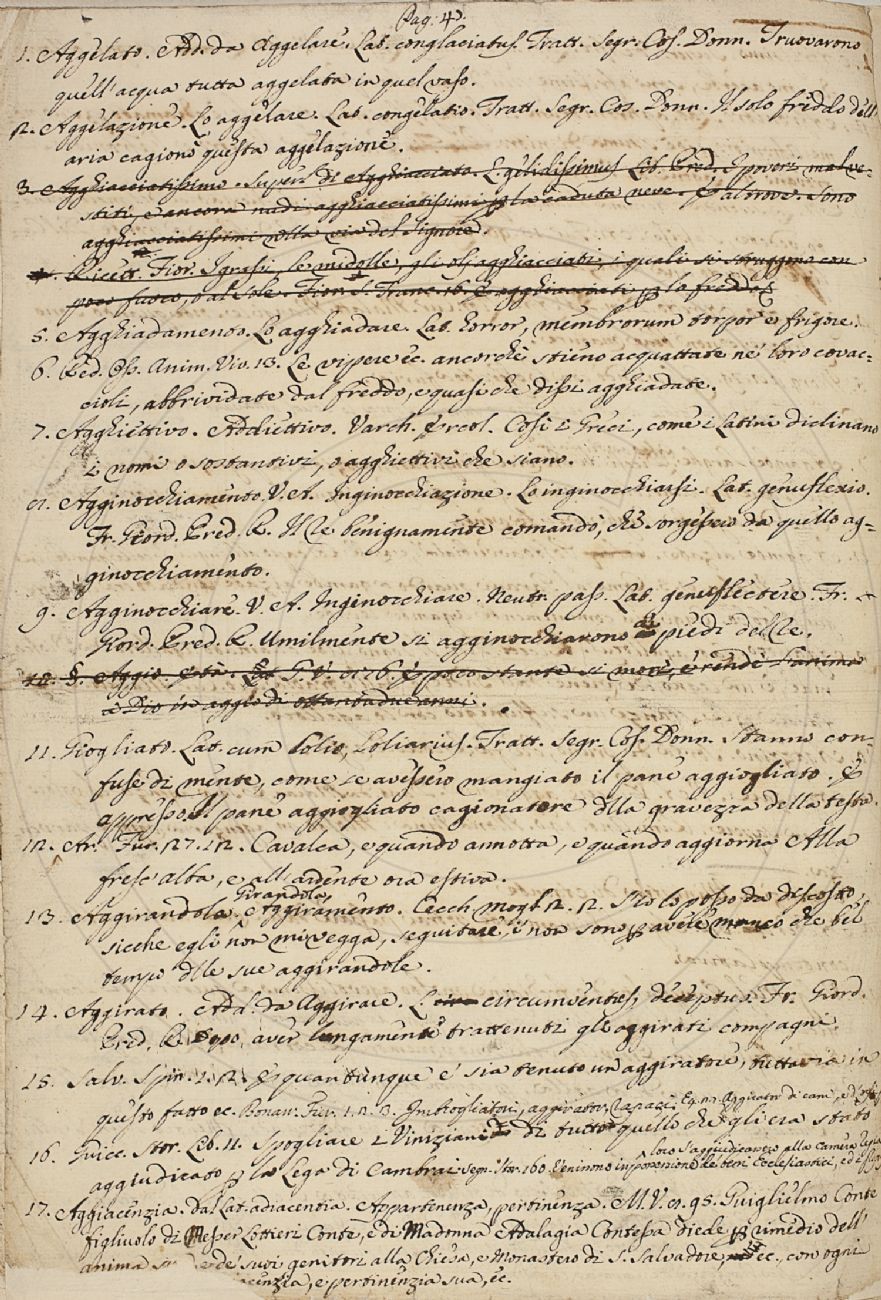 Pag. 40.
1. Aggelato. Add. da Aggelare. Lat. conglaciatus. Tratt. Segr. Cos. Donn. Truovarono
quell'acqua tutta aggelata in quel vaso.
2. Aggelazione. Lo aggelare. Lat. congelatio. Tratt. Segr. Cos. Donn. Il solo freddo dell'
aria cagionò questa aggelazione.
3. Agghiacciatissimo. Superl. di Agghiacciato. L. gelidissimus Lib. Pred. I poveri malve-
stiti, e ancora nudi agghiacciatissimi p la caduta neve. E altrove. Sono
agghiacciatissimi nella via del Signore.
Ricett. Fior. I grassi, le midolle, gli olj agghiacciati, i quali si struggono con
poco fuoco, o al Sole. Fior. S. Franc. 16. E agghiacciati p lo freddo
5. Agghiadamento. Lo agghiadare. Lat. horror, membrorum torpor e frigore.
6. Red. Oss. Anim. Viv. 13. Le vipere ec. ancorchè stieno acquattate ne' loro covac-
cioli, abbrividate dal freddo, e quasi che dissi agghiadate.
7. Agghiettivo. Addiettivo. Varch. Ercol. Così i Greci, come i Latini diclinano
i nomi o sostantivi, o agghiettivi che siano.
8. Agginocchiamento. V. A. Inginocchiazione. Lo inginocchiarsi. Lat. genuflexio.
Fr. Giord. Pred. R. Il Re benignamente comandò, che sorgessero da quello ag-
ginocchiamento.
9. Agginocchiare. V. A. Inginocchiare. Neutr. pass. Lat. genuflectere. Fr.
Giord. Pred. R. Umilmente si agginocchiarono a' piedi del Re.
10. §. Aggio. Età. G. V. 8. 26. E poco stante si morì, e rendè l'anima
a Dio in aggio di ottantadue anni.
11. Giogliato. Lat. cum lolio, Loliarius. Tratt. Segr. Cos. Donn. Stanno con-
fuse di mente, come se avessero mangiato il pane aggiogliato. E
appresso Il pane aggiogliato cagionatore della gravezza della testa.
12. Ar. Fur. 27. 12. Cavalca, e quando annotta, e quando aggiorna Alla
fresc'alba, e all'ardente ora estiva.
13. Aggirandola. Girandola, Aggiramento. Cecch. Mogl. 2. 2. S'io lo posso da discosto,
sicchè egli non mi vegga, seguitare, i' non sono p avere manco che bel
tempo delle sue aggirandole.
14. Aggirato. Add. da Aggirare. L. circumventus, deceptus. Fr. Giord.
Pred. R. Dopo aver lungamente trattenuti gli aggirati compagni.
15. Salv. Spin. 1. 2. E quantunque e' sia tenuto un aggiratore, tuttavia in
questo fatto ec. Bonar. Fier. 1. 2. 3. Imbrogliatori, aggiratori, rapaci. Aggirator di cani,
16. Guicc. Stor. Lib. 11. Spogliare i Viniziani di tutto quello che gli era stato
aggiudicato p la Lega di Cambrai Segn. Stor. 160. Venimmo in opinione loro s'aggiudicassero alla Camera de' beni Ecclesiastici,
17. Aggiacenzia. Dal Lat. adiacentia. Appartenenza, pertinenza. M. V. 8. 95. Guiglielmo Conte
figliuolo di Messer Lottieri Conte, e di Madonna Adalagia Contessa diede p rimedio dell'
anima e de' suoi genitori alla Chiesa, e Monastero di S. Salvadore, ec., con ogni
, e pertinenzia sua, ec.